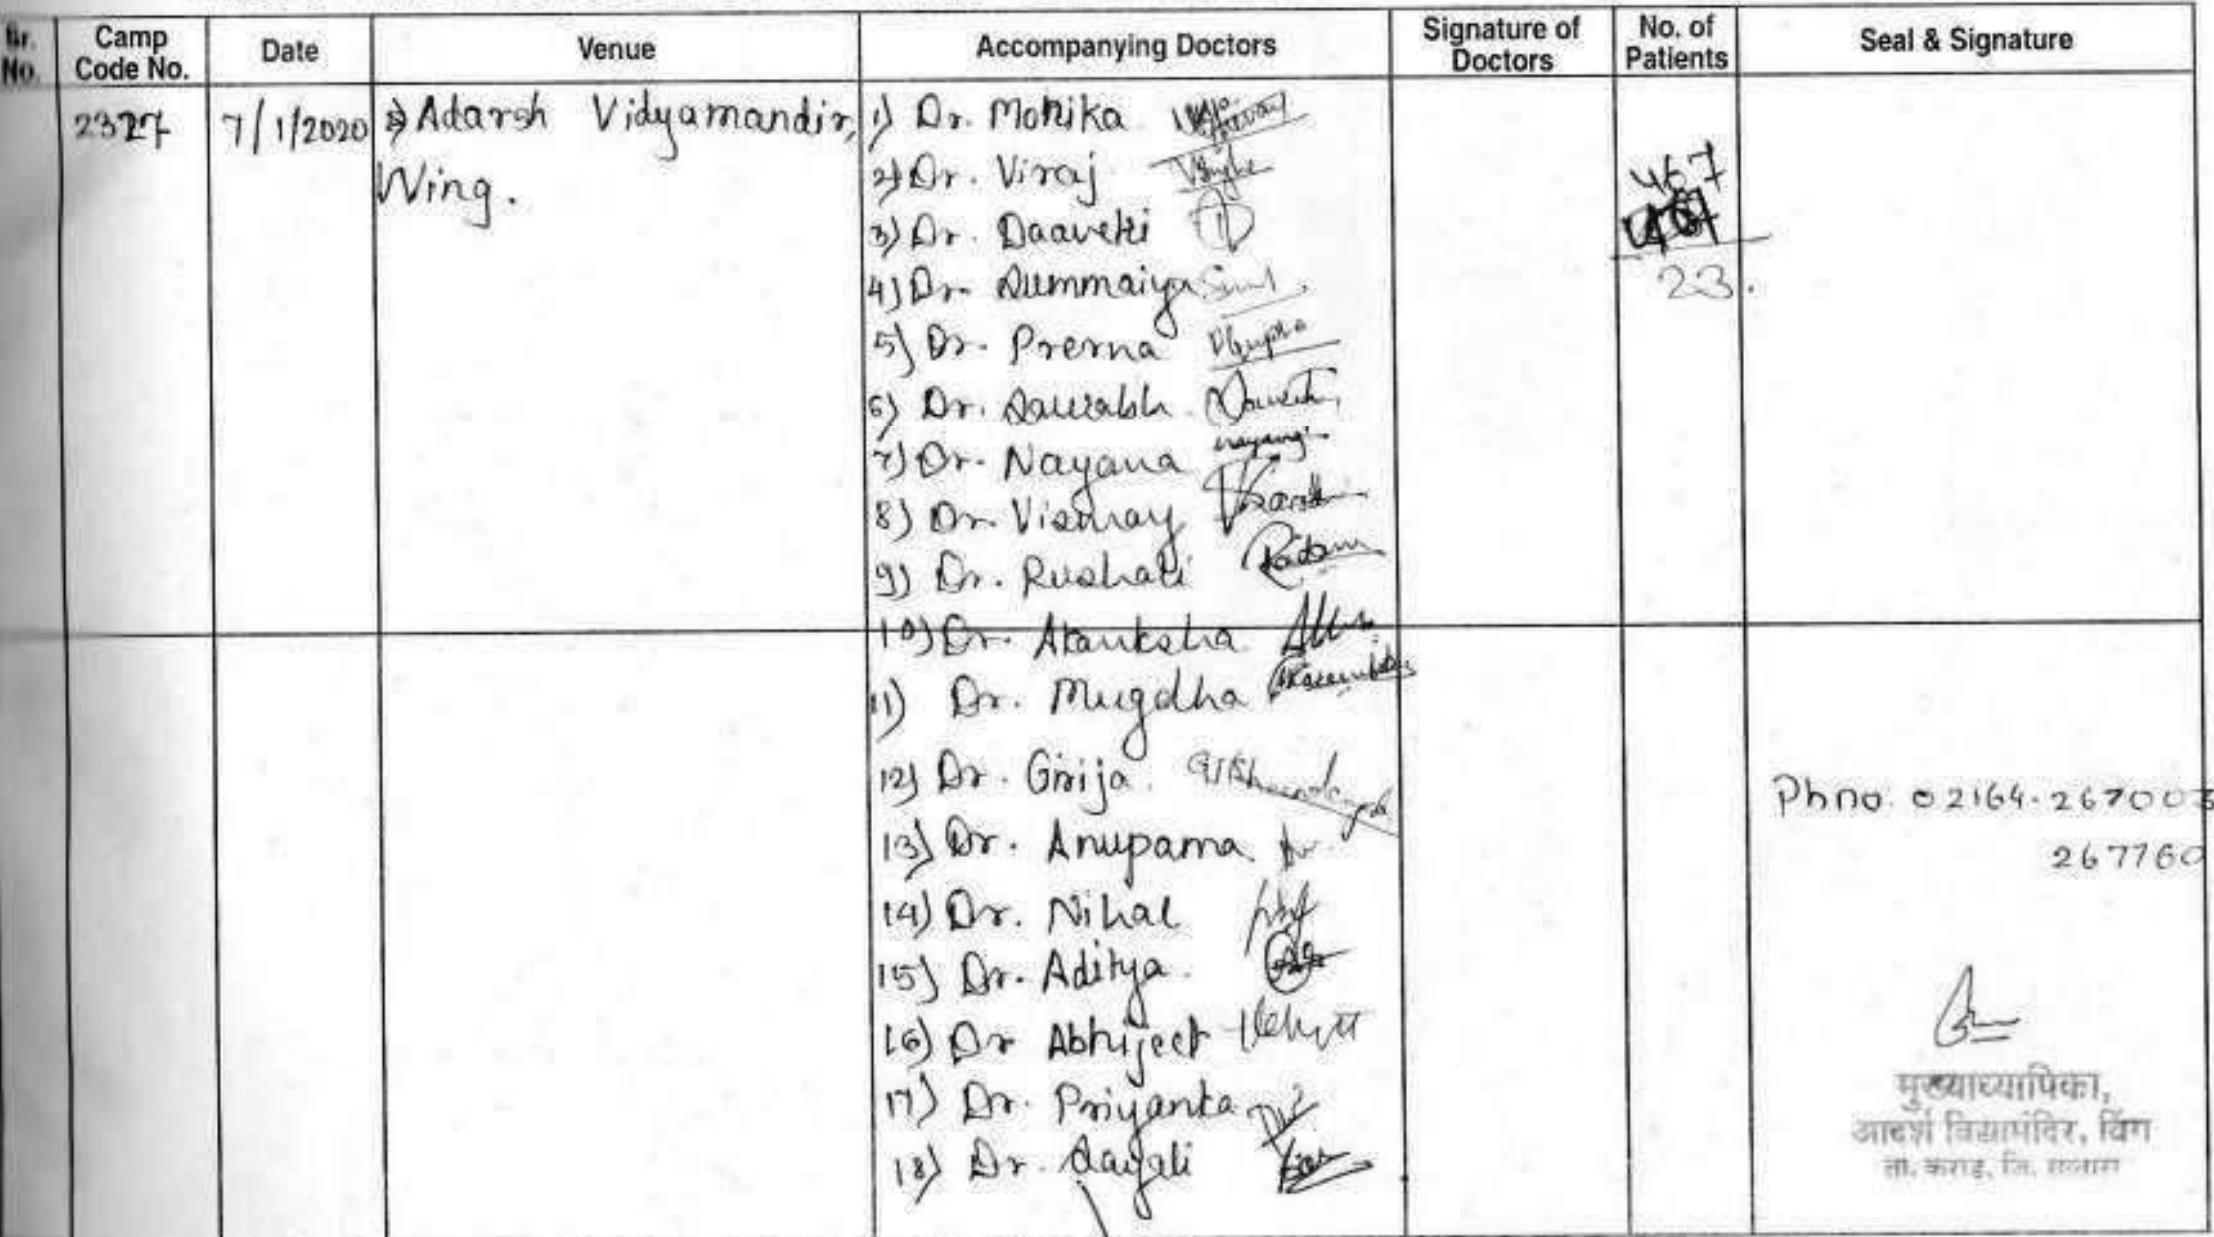 Sr. No. Camp Code No. Date Venue Accompanying Doctors Signature of Doctors No. of Patients Seal & Signature
2327 7/1/2020 Adarsh Vidyamandir,
Wing.
1) Dr. Monika
2) Dr. Viraj
3) Dr. Daaveki
4) Dr. Summaiya
5) Dr. Prerna
6) Dr. Saurabh
7) Dr. Nayana
8) Dr. Vismay
9) Dr. Rushali
10) Dr. Akanksha
11) Dr. Mugdha
12) Dr. Girija
13) Dr. Anupama
14) Dr. Nihal
15) Dr. Aditya
16) Dr Abhijeet
17) Dr. Priyanka
18) Dr. Sayali
467
23.
Ph no. 02164-267003
267760
मुख्याध्यापिका,
आदर्श विद्यामंदिर, विंग
ता. कराड, जि. सातारा